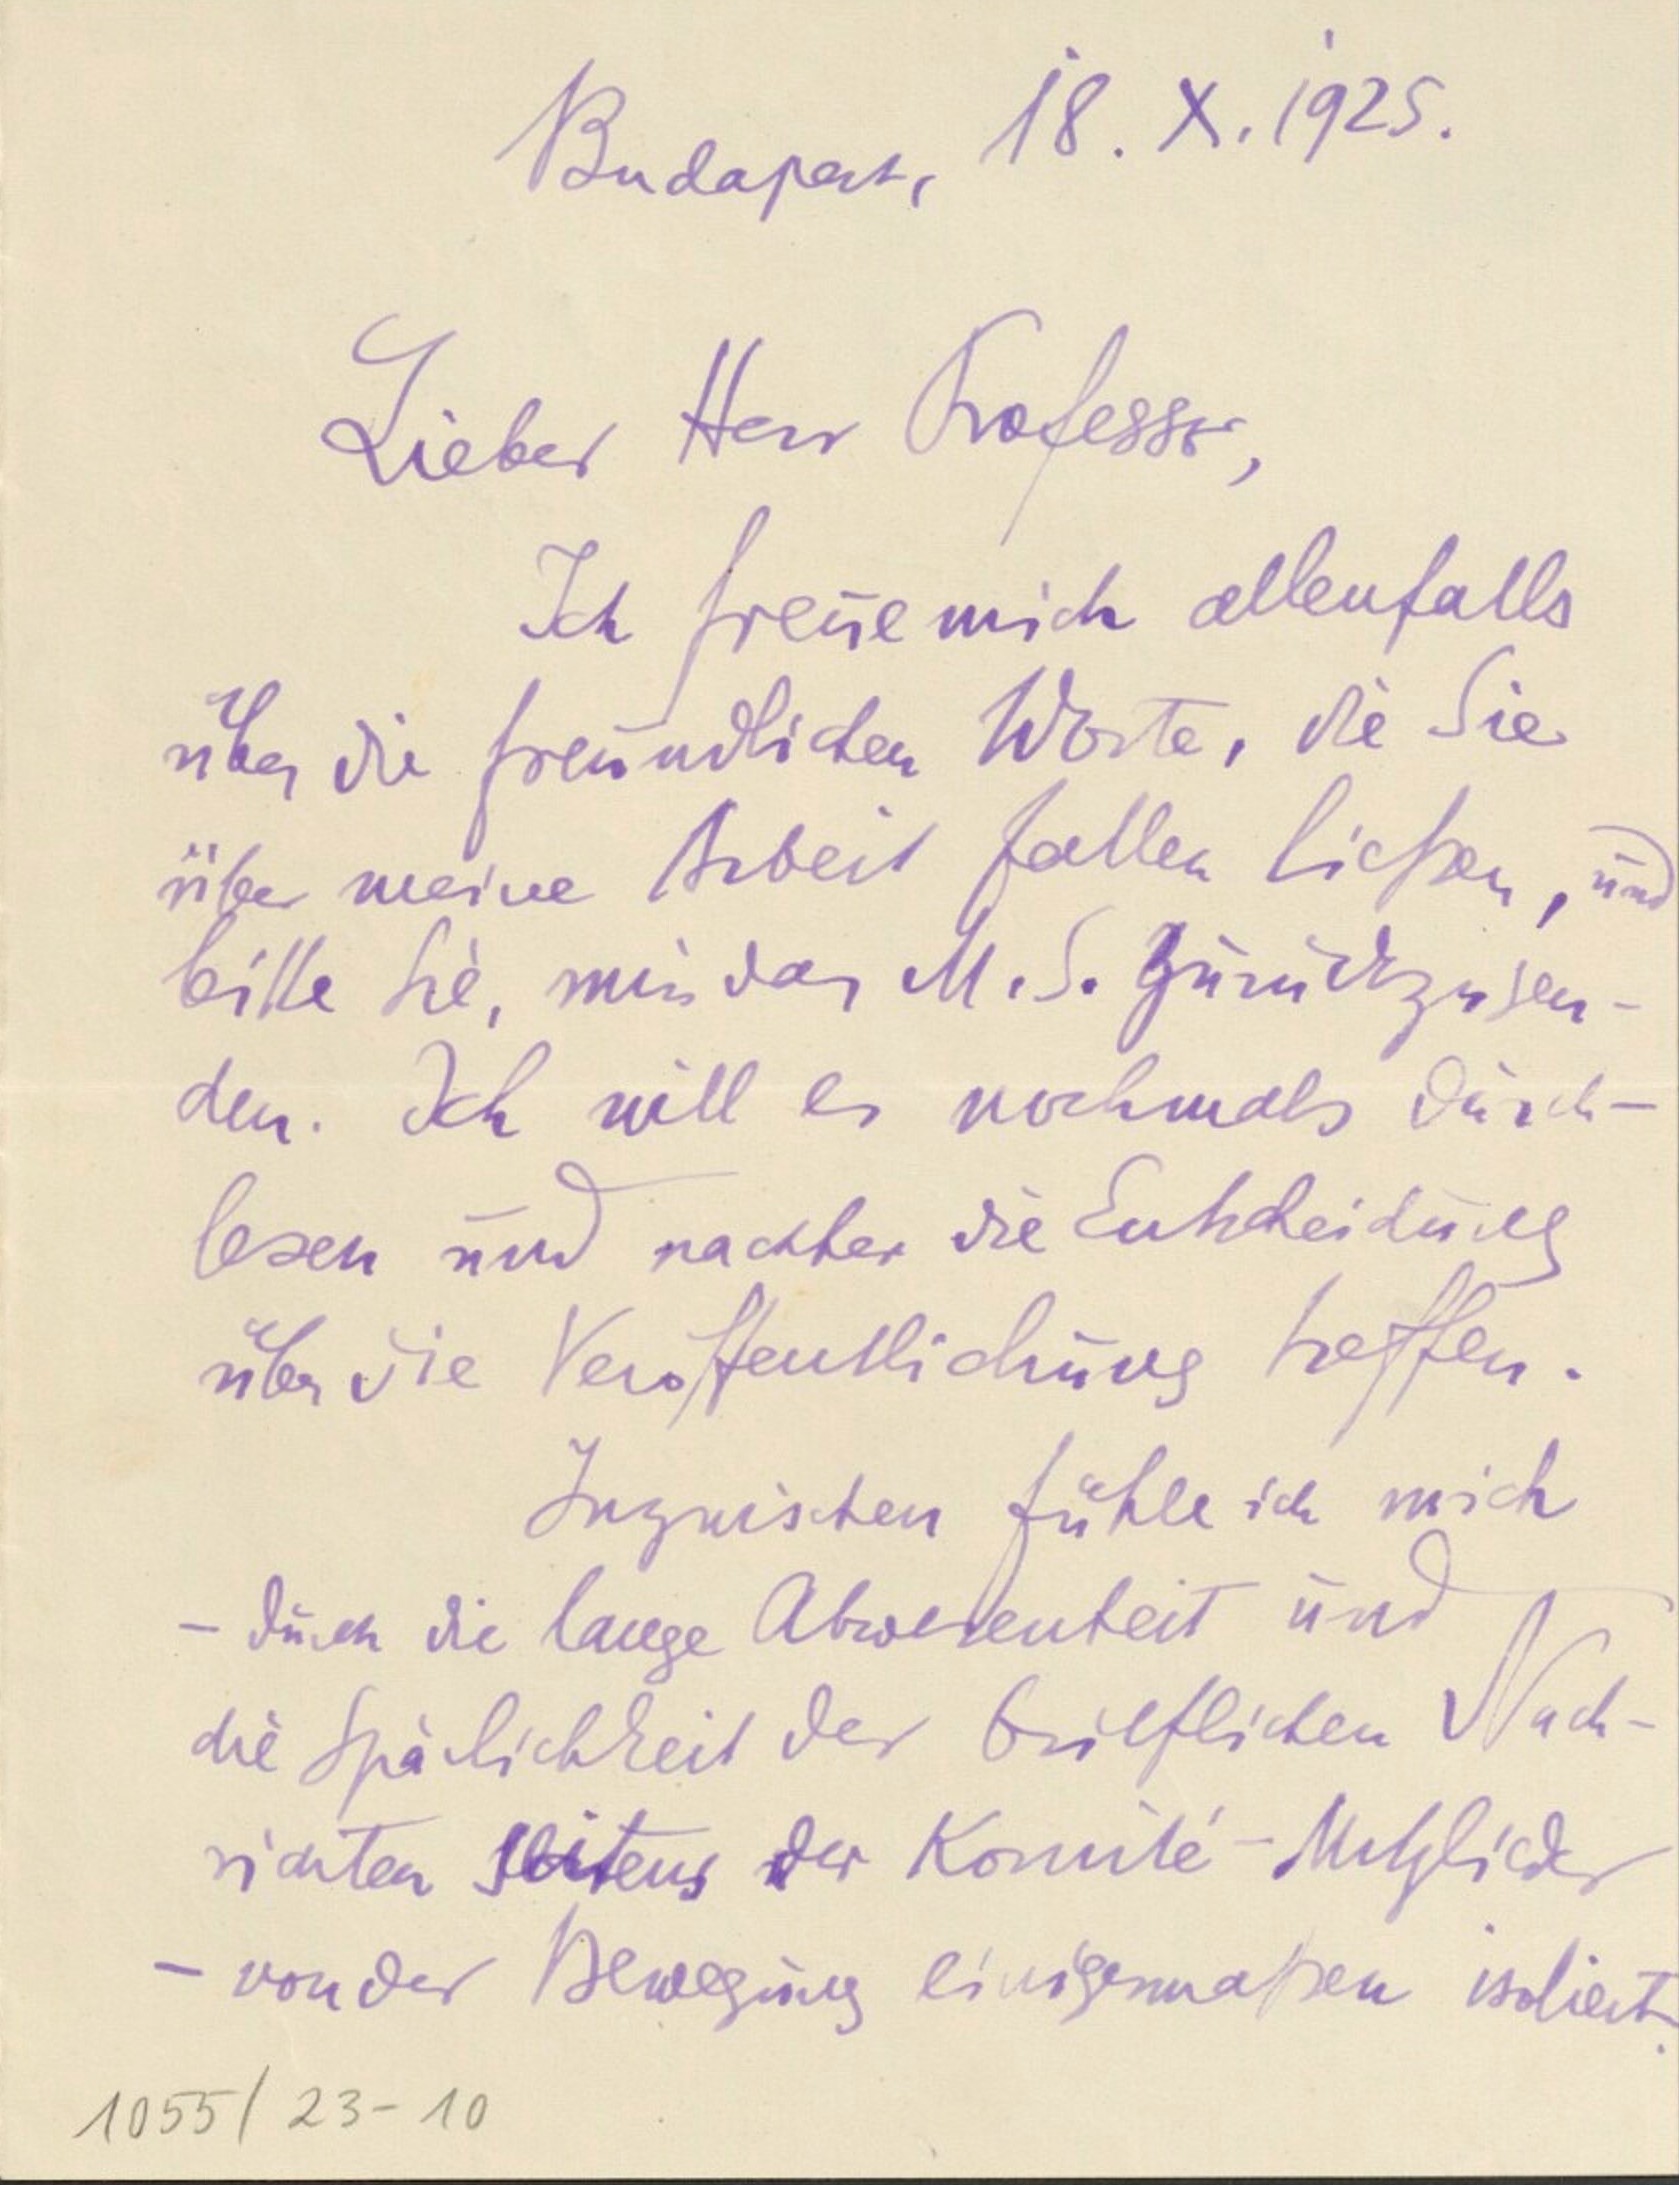 Budapest, 18. X. 1925.
Lieber Herr Professor,
Ich freue mich allenfalls
über die freundlichen Worte, die Sie
über meine Arbeit fallen ließen, und
bitte Sie, mir das M.S. zurückzusen-
den. Ich will es nochmals durch-
lesen und nachher die Entscheidung
über die Veröffentlichung treffen.
Inzwischen fühle ich mich
- durch die lange Abwesenheit und
die Spärlichkeit der brieflichen Nach-
richten seitens der Komité-Mitglieder
- von der Bewegung einigermaßen isoliert.
1055/23-10